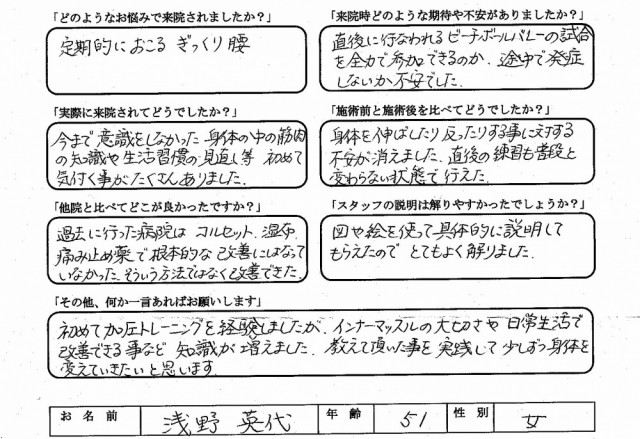 「どのようなお悩みで来院されましたか？」
定期的におこる ぎっくり腰
「来院時どのような期待や不安がありましたか？」
直後に行なわれるビーチボールバレーの試合
を全力で参加できるのか、途中で発症
しないか不安でした。
「実際に来院されてどうでしたか？」
今まで意識をしなかった身体の中の筋肉
の知識や生活習慣の見直し等 初めて
気付く事がたくさんありました。
「施術前と施術後を比べてどうでしたか？」
身体を伸ばしたり反ったりする事に対する
不安が消えました。直後の練習も普段と
変わらない状態で行えた。
「他院と比べてどこが良かったですか？」
過去に行った病院は コルセット、湿布、
痛み止め薬で根本的な改善にはなって
いなかった。そういう方法ではなく改善できた。
「スタッフの説明は解りやすかったでしょうか？」
図や絵を使って具体的に説明して
もらえたので とてもよく解りました。
「その他、何か一言あればお願いします」
初めて加圧トレーニングを経験しましたが、インナーマッスルの大切さや日常生活で
改善できる事など 知識が増えました。教えて頂いた事を実践して少しずつ身体を
変えていきたいと思います。
お名前 浅野 英代 年齢 51 性別 女